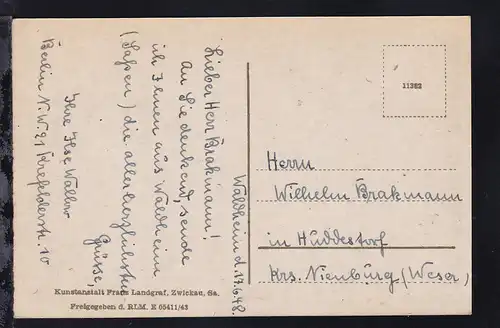 Waldheim d. 17.6.48.
Lieber Herr Brakmann!
An Sie denkend, sende
ich Ihnen aus Waldheim
(Saßen) die allerherzlichsten
Grüsse,
Ihre Ilse Wallow
Berlin N.W. 21 Krefelderstr. 10
11382
Herrn
Wilhelm Brakmann
in Huddestorf
Krs. Nienburg (Weser)
Kunstanstalt Franz Landgraf, Zwickau, Sa.
Freigegeben d. RLM. E 05411/43